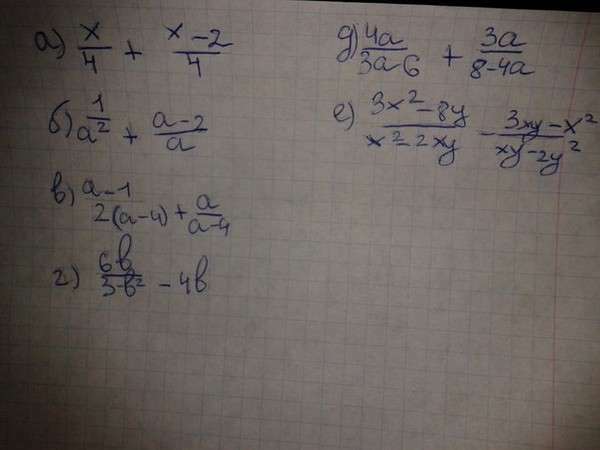 а) x/4 + x-2/4
б) 1/a² + a-2/a
в) a-1/2(a-4) + a/a-4
г) 6b/3-b² - 4b
д) 4a/3a-6 + 3a/8-4a
е) 3x²-8y/x²-2xy - 3xy-x²/xy-2y²